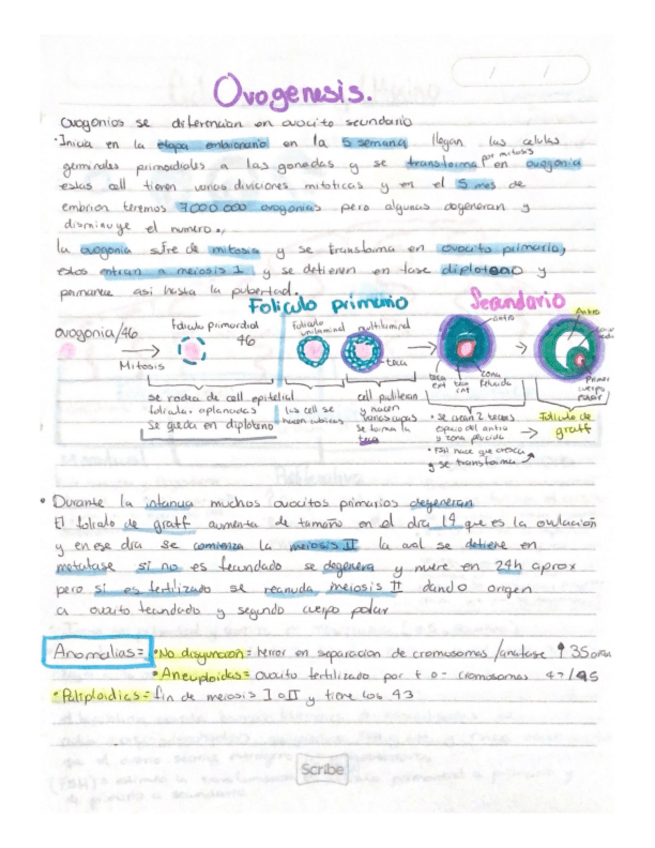 Ovogenesis.
Ovogonios se diferencian en ovocito secundario
• Inicia en la etapa embrionario en la 5 semana llegan las celulas
germinales primordiales a las gonadas y se transforma por mitosis en ovogonia
estas cell tienen varias diviciones mitoticas y en el 5 mes de
embrion teremos 7000 000 ovogonias pero algunas degeneran y
disminuye el numero.
la ovogonia sufre de mitosis y se transforma en ovocito primario,
estos entran a meiosis I y se detienen en fase diploteno y
permanece asi hasta la pubertad.
Foliculo primario Secundario
ovogonia/46 Foliculo primordial 46 Foliculo unilaminal multilaminal antro Antro
Mitosis teca teca ext teca int zona Pelucida Primer cuerpo polar
se rodea de cell epitelial
folicula. aplanadas
se queda en diploteno
las cell se
hacen cubicas
cell proliferan
y hacen
varias capas
se forma la
teca
• se crean 2 tecas
espacio del antro
y zona pelucida
• FSH hace que crezca
y se transforma
Foliculo de
graff
• Durante la infancia muchos ovocitos primarios degeneran
El folículo de graff aumenta de tamaño en el dia 14 que es la ovulación
y en ese dia se comienza la meiosis II la cual se detiene en
metafase si no es fecundado se degenera y muere en 24h aprox
pero si es fertilizado se reanuda meiosis II dando origen
a ovocito fecundado y segundo cuerpo polar
Anomalias= • No disyunción= herror en separacion de cromosomas /anafase ↑ 35 años
• Aneuploidas= ovocito fertilizado por + o - cromosomas 47/45
• Poliploidias= fin de meiosis I o II y tiene los 43
Scribe